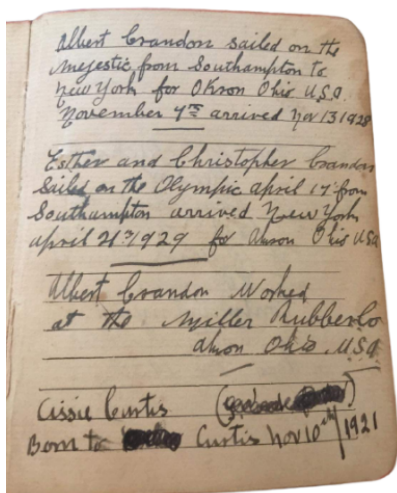 Albert Crandon sailed on the
Majestic from Southampton to
New York for Okron Ohio U.S.A.
November 7th arrived Nov 13 1928
Esther and Christopher Crandon
Sailed on the Olympic April 17 from
Southampton arrived New York
April 21 1929 for Akron Ohio USA
Albert Crandon Worked
at the Miller Rubber Co
Akron Ohio, U.S.A
Cissie Curtis
Born to Curtis Nov 10th 1921